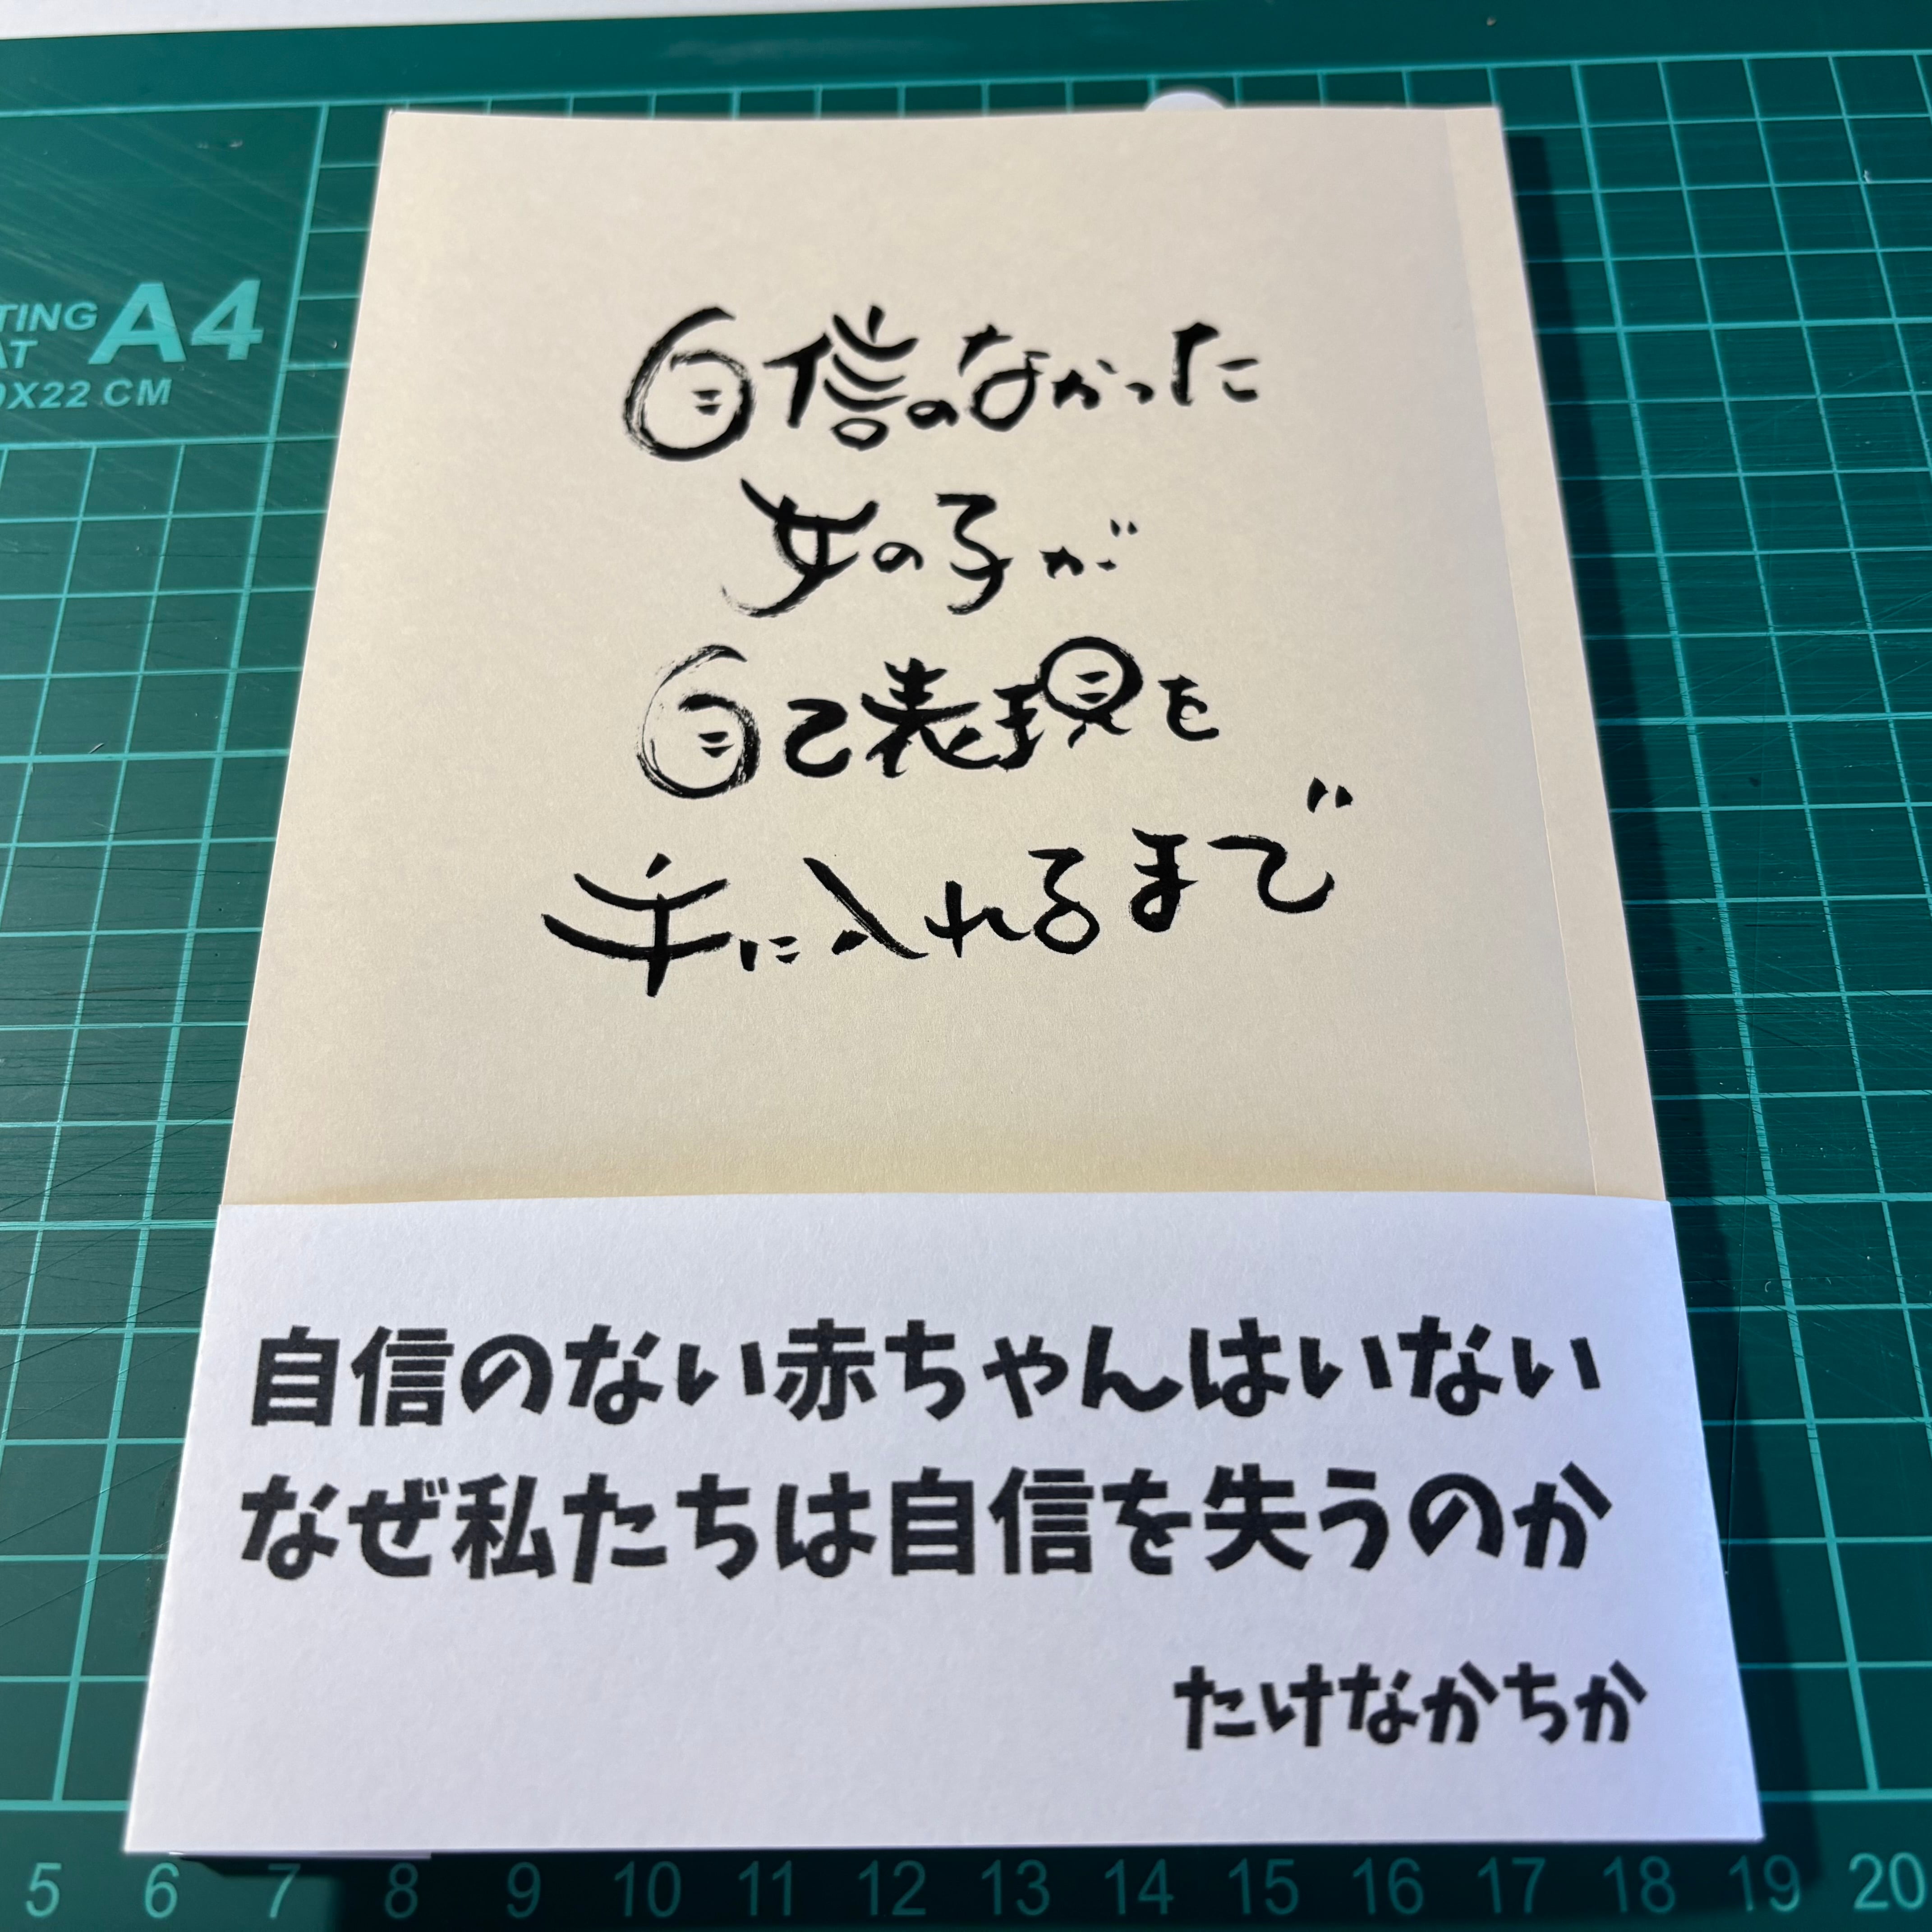 自信のなかった
女の子が
自己表現を
手に入れるまで
自信のない赤ちゃんはいない
なぜ私たちは自信を失うのか
たけなかちか
TING A4
AT
X22 CM
5 6 7 8 9 10 11 12 13 14 15 16 17 18 19 20